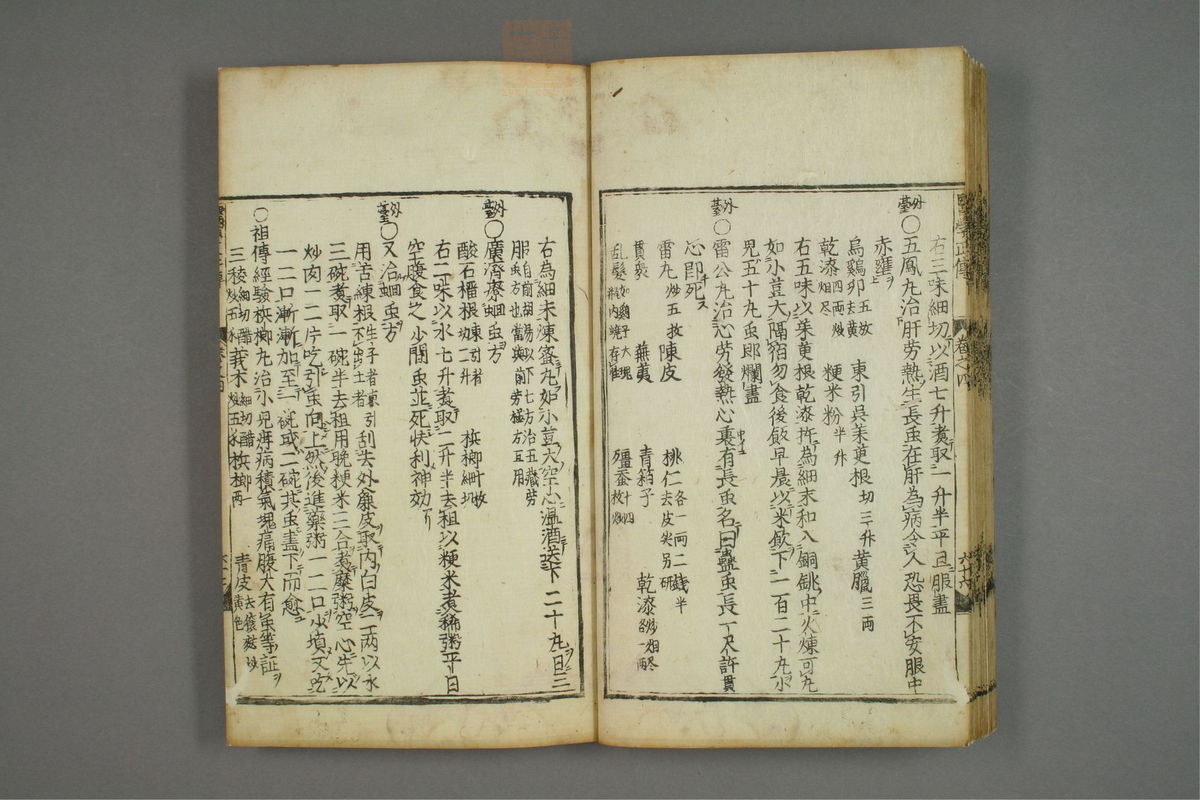 右三味細切以酒七升煮取一升半平旦服盡
外臺〇五鳳丸治肝勞熱生長虫在肝為病令人恐畏不安眼中
赤
烏鷄卵五枚去黃 東引吳茱萸根切三升 黃臘三両
乾漆四両炒烟尽 粳米粉半升
右五味以茱萸根乾漆杵為細末和入銅銚中火煉可丸
如小荳大隔宿勿食後飲早晨以米飲下一百二十丸小
児五十丸虫即爛盡
外臺〇雷公丸治心勞發熱心裏有長虫名曰蠱虫長一尺許貫
心即死
雷丸炒五枚 陳皮 桃仁各一両二錢半去皮尖另研
貫衆 蕪荑 青箱子 乾漆炒烟尽各一両
乱髮如鷄子大一塊 殭蚕十四枚炒
右為細末煉蜜丸如小荳大空心温酒送下二十丸日三
服自前胡湯以下七方治五臟勞虫方也當與前勞極方互用
外臺〇廣濟療蛔虫方
酸石榴根東引者二升切 梹榔十枚細切
右二味以水七升煮取二升半去柤以粳米煮稀粥平日
空腹食之少間虫並死快利神効
外臺〇又治蛔虫方
用苦練根生子者東引不出土者刮去外麁皮取內白皮二両以水
三碗煮取一碗半去柤用晚粳米三合煮糜粥空心先以
炒肉一二片吃引虫向上然後進藥粥一二口少填又吃
一二口漸漸加至一碗或二碗其虫盡下而愈
〇祖傳經驗梹榔丸治小児疳病積氣塊痛腹大有虫等証
三稜細切醋炒五 莪朮細切醋炒五 梹榔一両 青皮去穰麸炒黃色